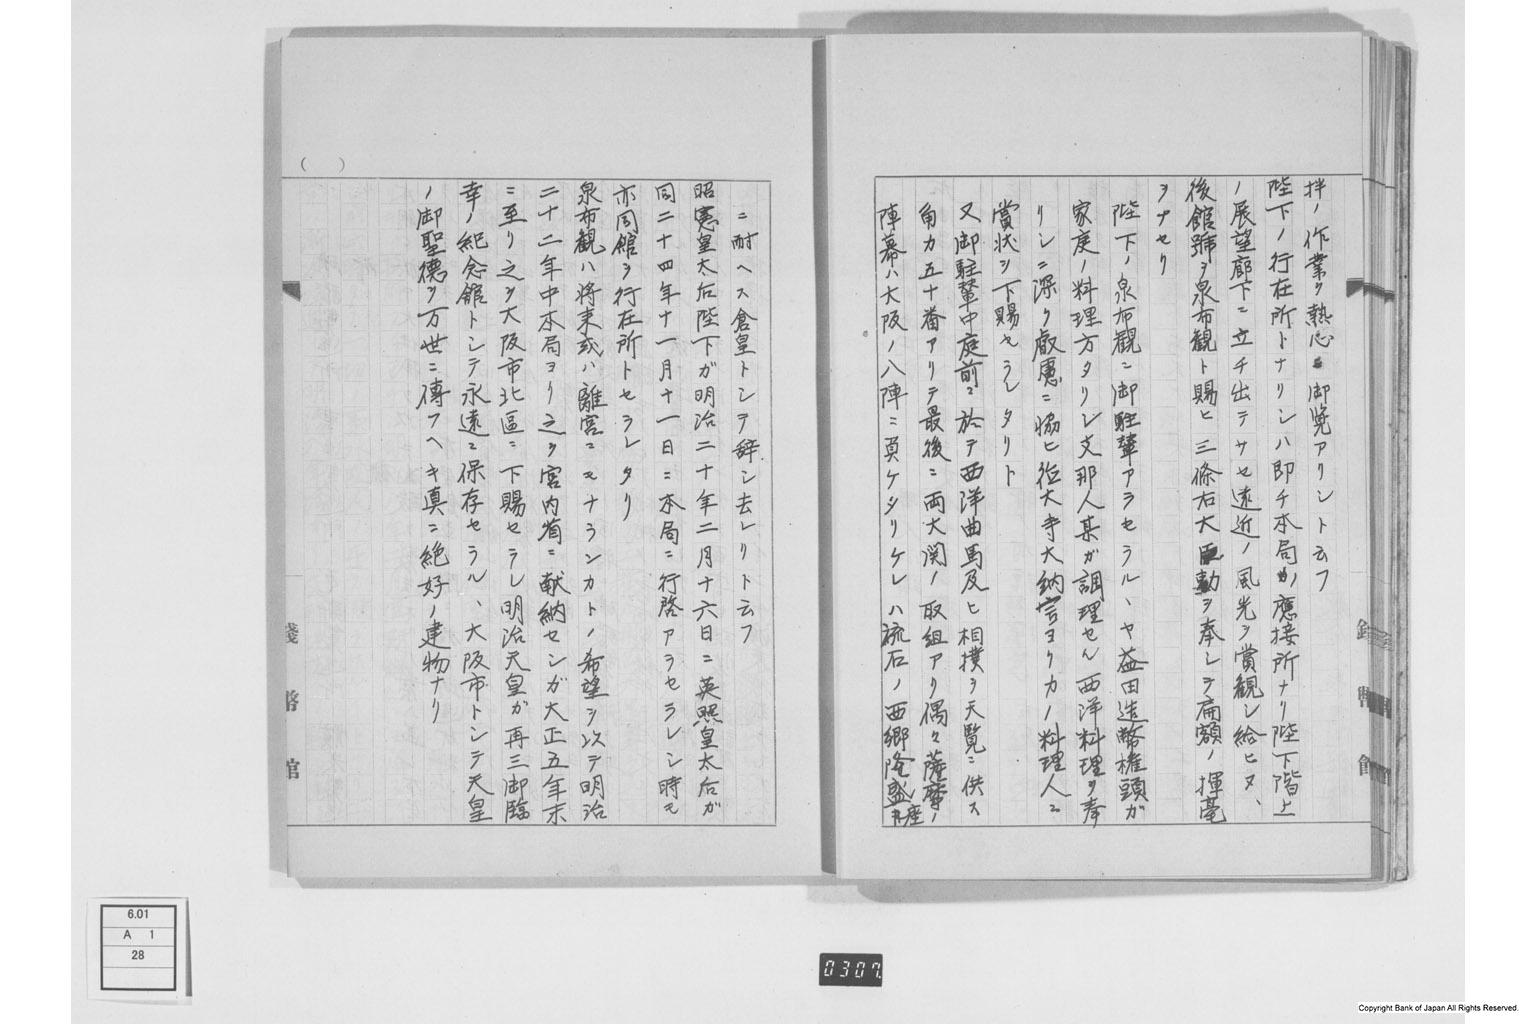 拌ノ作業ヲ熱心ニ御覽アリシト云フ
陛下ノ行在所トナリシハ即チ本局ノ應接所ナリ陛下階上
ノ展望廊下ニ立チ出テサセ遠近ノ風光ヲ賞観シ給ヒヌ、
後館號ヲ泉布観ト賜ヒ三條右大臣勅ヲ奉シテ扁額ノ揮毫
ヲナセリ
陛下ノ泉布観ニ御駐輦アラセラル、ヤ益田造幣権頭ガ
家庭ノ料理方タリシ支那人某ガ調理セル西洋料理ヲ奉
リシニ深ク叡慮ニ協ヒ徳大寺大納言ヨリカノ料理人ニ
賞状ヲ下賜セラレタリト
又御駐輦中庭前ニ於テ西洋曲馬及ヒ相撲ヲ天覧ニ供ス
角力五十番アリテ最後ニ両大関ノ取組アリ偶々薩摩ノ
陣幕ハ大阪ノ八陣ニ負ケタリケレハ流石ノ西郷隆盛座
ニ耐ヘス倉皇トシテ辞シ去レリト云フ
昭憲皇太后陛下ガ明治二十年二月十六日ニ英照皇太后ガ
同二十四年十一月十一日ニ本局ニ行啓アラセラレシ時モ
亦同館ヲ行在所トセラレタリ
泉布観ハ将来或ハ離宮ニモナランカトノ希望ヲ以テ明治
二十二年中本局ヨリ之ヲ宮内省ニ献納センガ大正五年末
ニ至リ之ヲ大阪市北區ニ下賜セラレ明治天皇ガ再三御臨
幸ノ紀念館トシテ永遠ニ保存セラル、大阪市トシテ天皇
ノ御聖德ヲ万世ニ傳フヘキ真ニ絶好ノ建物ナリ
( )
錢幣館
6.01
A 1
28
0307
Copyright Bank of Japan All Rights Reserved.